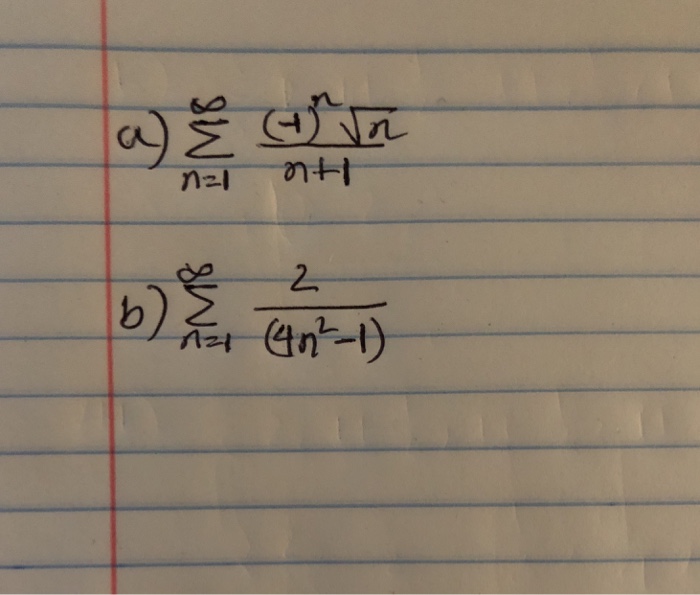 a) ∑_{n=1}^{∞} \frac{(-1)^n \sqrt{n}}{n+1}
b) ∑_{n=1}^{∞} \frac{2}{(4n^2-1)}